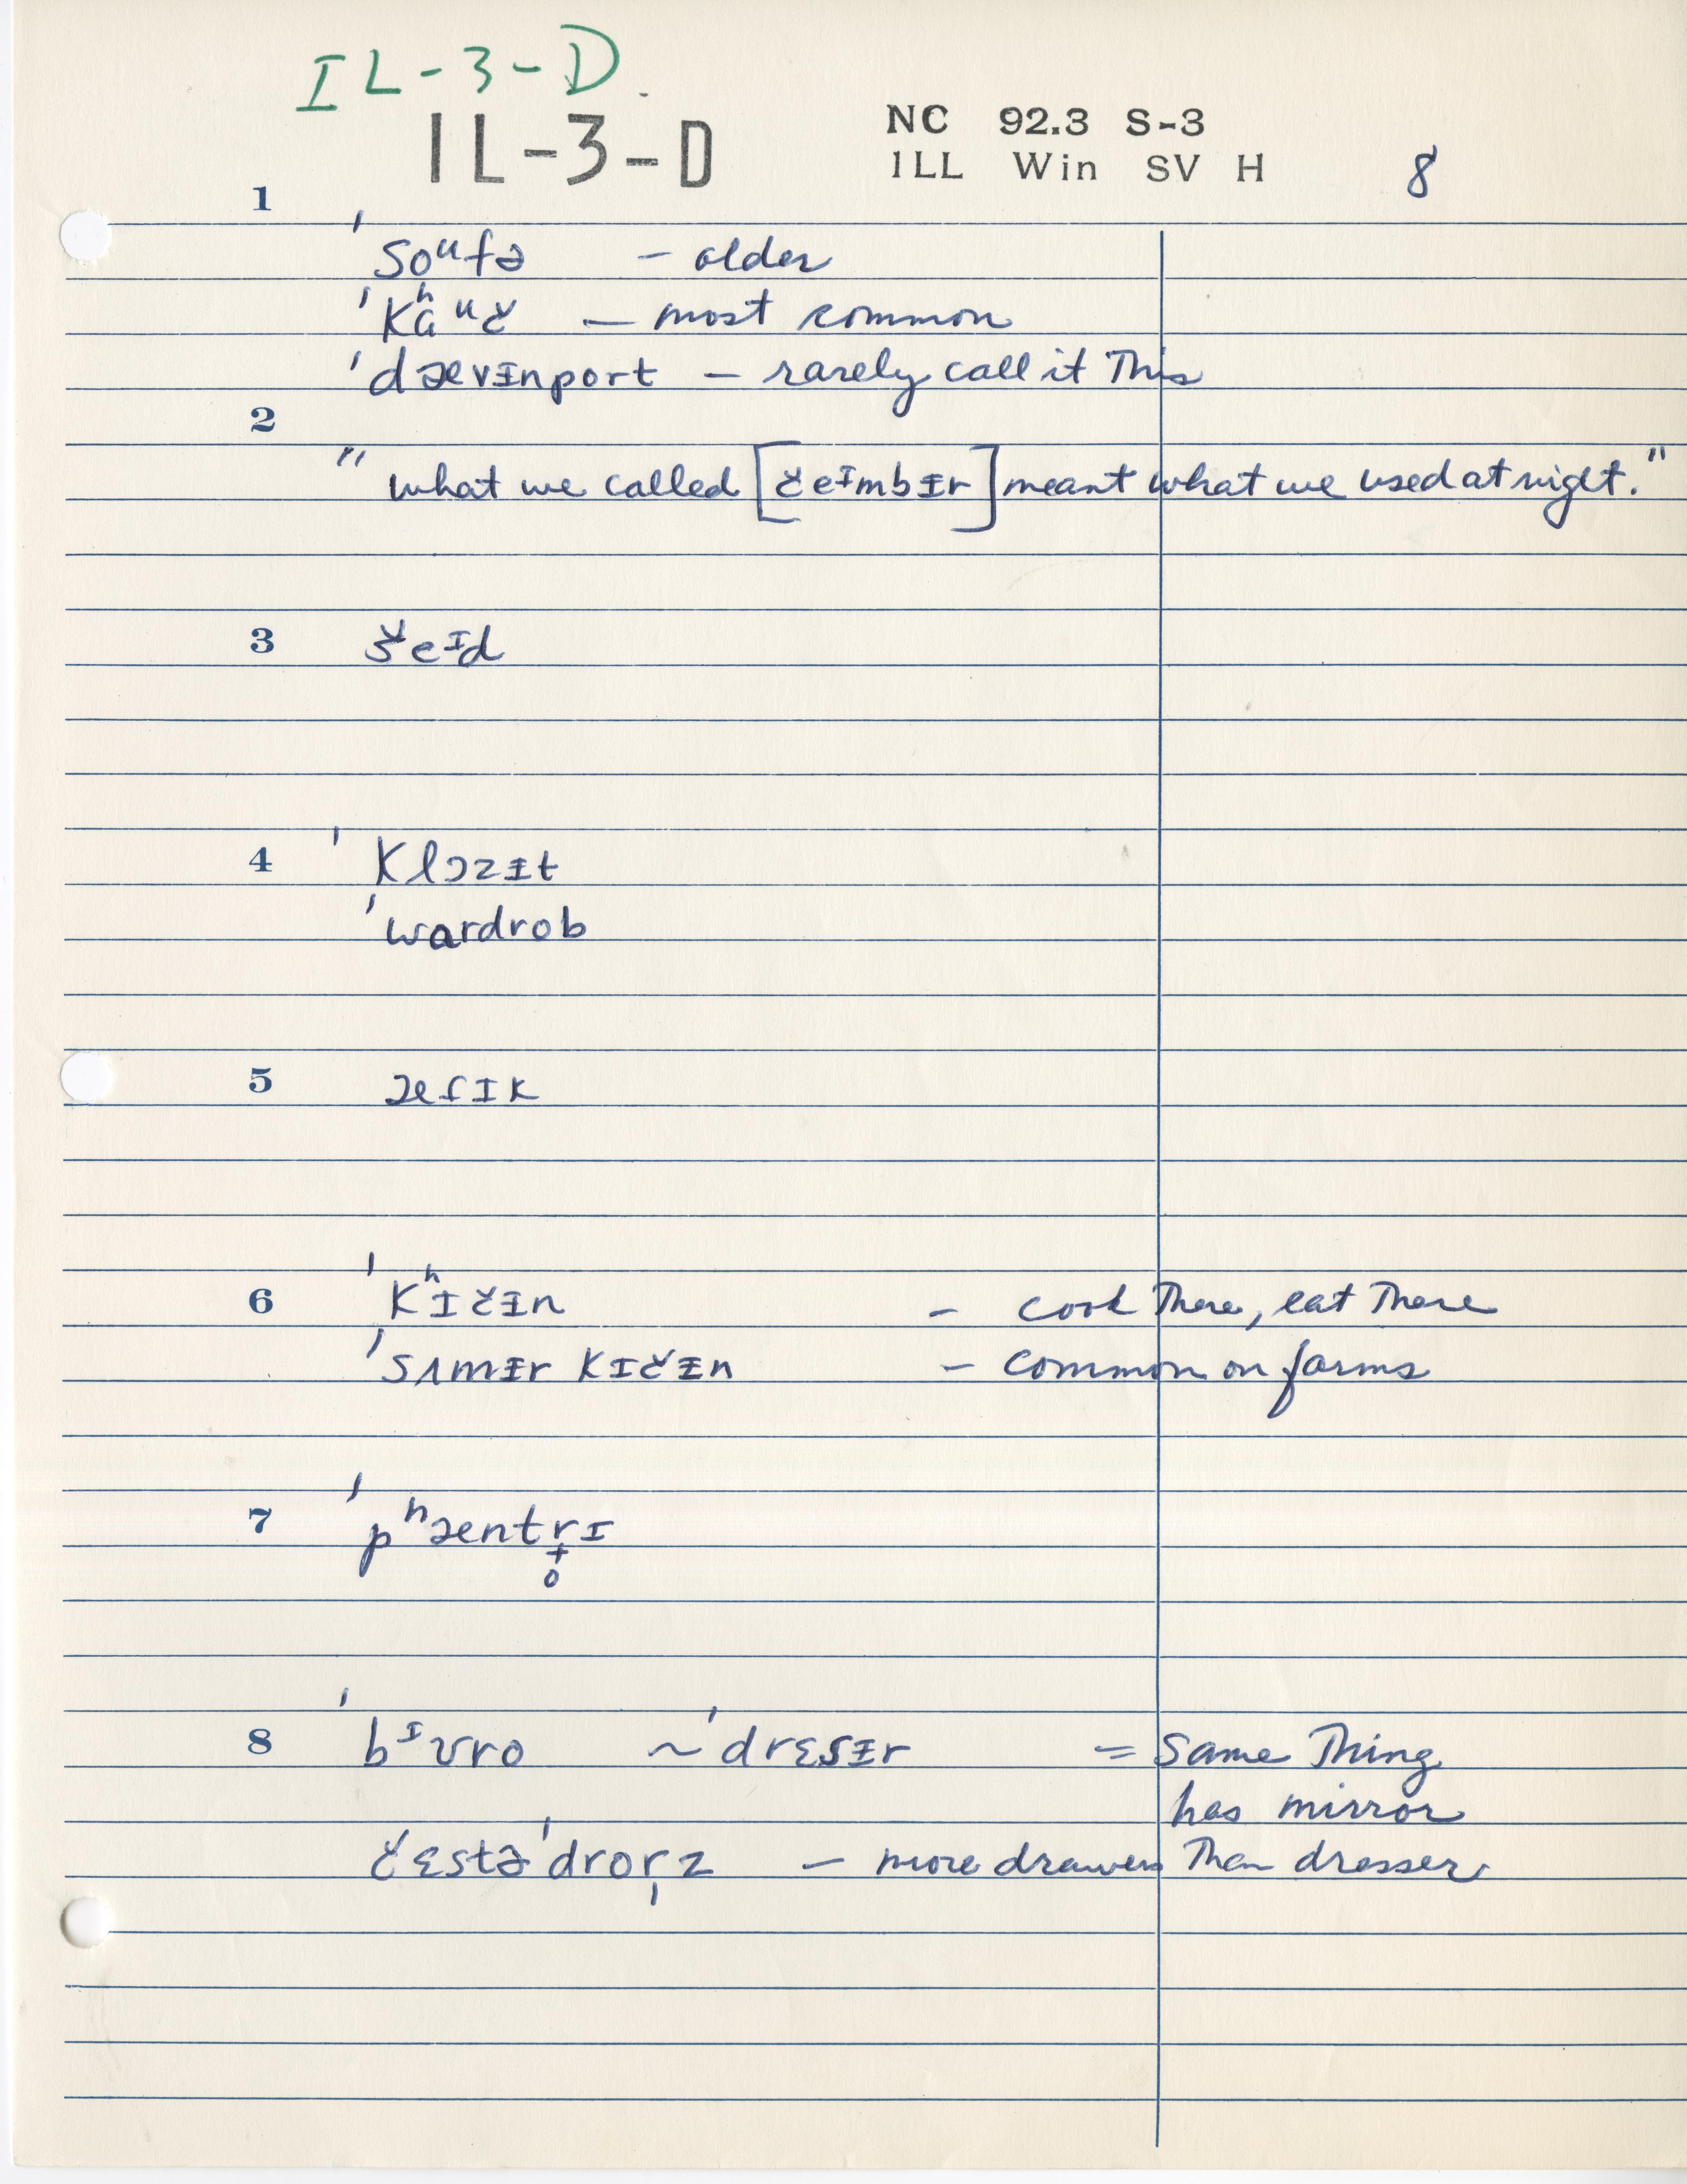 IL-3-D
IL-3-D
NC 92.3 S-3
ILL Win SV H
8
1
ˈsoᵘfə – older
ˈkʰaᵘč – most common
ˈdævᵻnport – rarely call it This
2
"what we called [čeᶦmbᵻr] meant what we used at night."
3
šeᶦd
4 ˈklɔzᵻt
ˈwardrob
5 æɾɪk
6 ˈkʰɪčᵻn – cook There, eat There
ˈsʌmᵻr kɪčᵻn – common on farms
7 ˈpʰæntr̟̊ɪ
8 ˈbᶦʊro ~ ˈdrɛsᵻr = same Thing
has mirror
čɛstəˈdror̩z – more drawers Than dresser